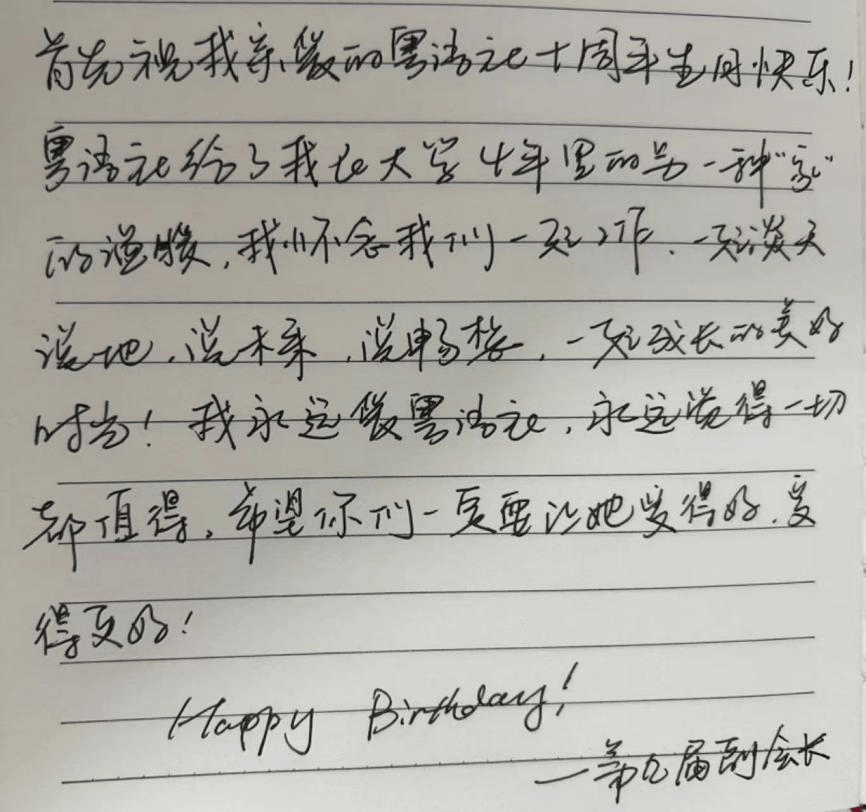 首先祝我亲爱的粤语社十周年生日快乐!
粤语社给了我在大学4年里的另一种"家"
的温暖,我怀念我们一起工作、一起谈天
说地,说未来,说畅想,一起成长的美好
时光!我永远爱粤语社,永远觉得一切
都值得,希望你们一定要让她变得好,变
得更好!
Happy Birthday!
—第九届副会长